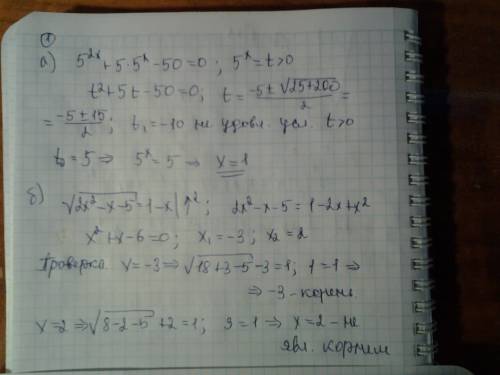 ①
а) 5^{2x} + 5·5^x - 50 = 0 ; 5^x = t > 0
t² + 5t - 50 = 0; t = \frac{-5 ± \sqrt{25+200}}{2} =
= \frac{-5 ± 15}{2}; t₁ = -10 не удовл. усл. t > 0
t₂ = 5 ⇒ 5^x = 5 ⇒ x = 1
б) \sqrt{2x² - x - 5} = 1 - x | ↑²; 2x² - x - 5 = 1 - 2x + x²
x² + x - 6 = 0; x₁ = -3; x₂ = 2
Проверка x = -3 ⇒ \sqrt{18+3-5} - 3 = 1; 1 = 1 ⇒
⇒ -3 - корень
x = 2 ⇒ \sqrt{8-2-5} + 2 = 1; 3 = 1 ⇒ x = 2 - не
явл. корнем